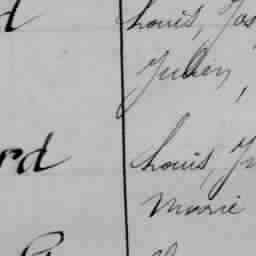 d Louis, Jos
Julien,
rd Louis, J
Marie